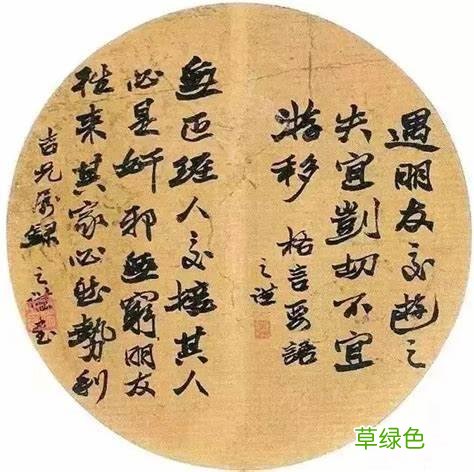 遇朋友交遊之
失宜剴切不宜
游移 格言要語
之謙
無正經人交接其人
必是奸邪無窮朋友
往來其家必然勢利
吉兄屬錄 之謙書
草绿色